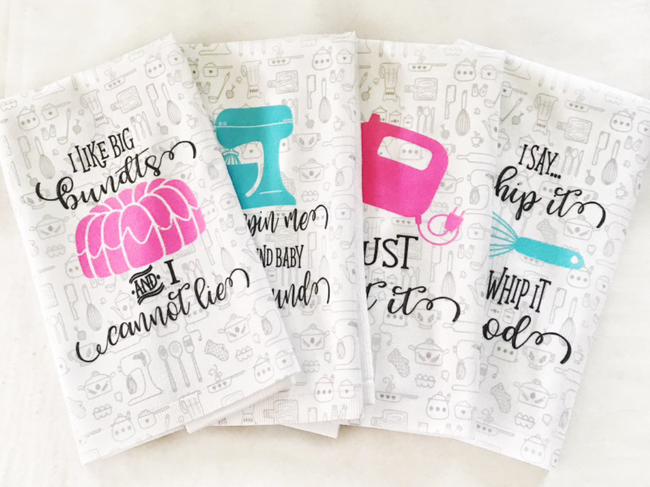 I LIKE BIG
bundts
AND I
cannot lie
pin me
ND BABY
und
UST
it
I SAY...
hip it
WHIP IT
od